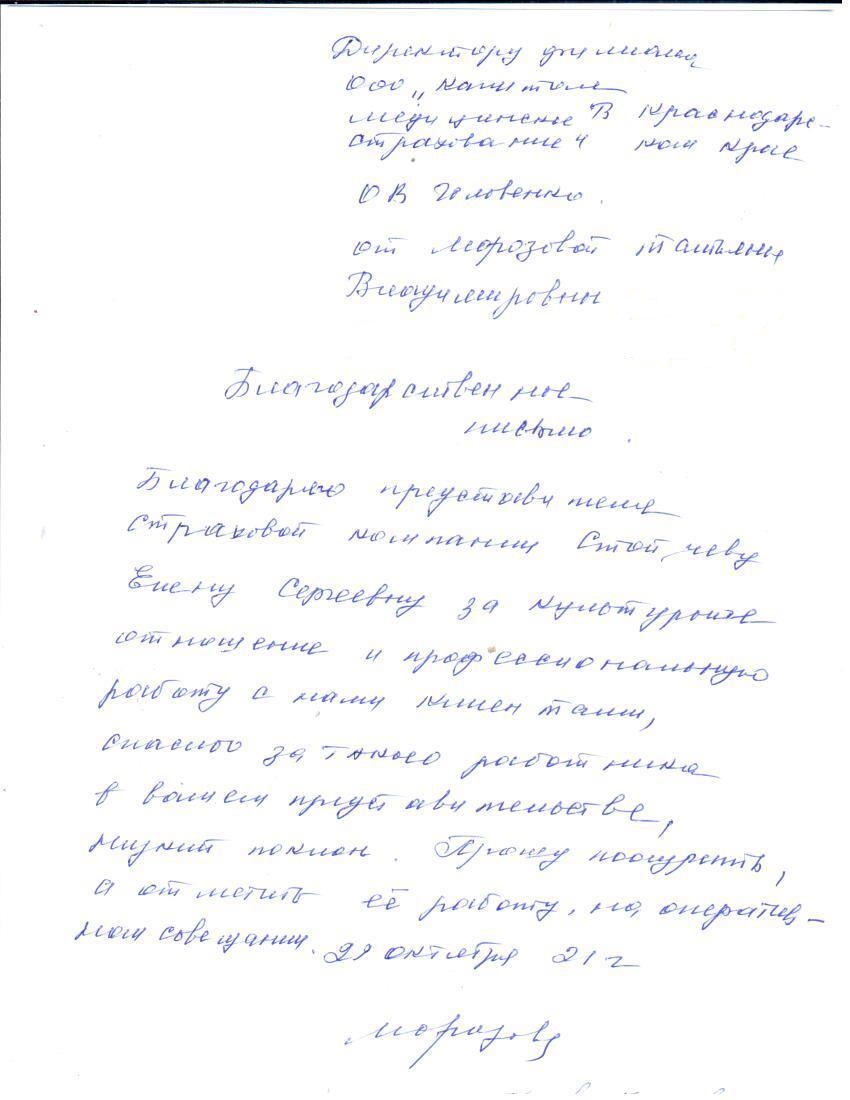 Директору филиала
ООО „Капитал
медицинское В Краснодарс-
страхование" ком крае
О В Головенко.
от Морозовой Татьяны
Владимировны
Благодарственное
письмо.
Благодарю представителя
Страховой компании
Елену Сергеевну за культурное
отношение и профессиональную
работу с нами клиентами,
спасибо за такого работника
в вашем представительстве,
низкий поклон. Прошу поощрить,
а отметить её работу, на оператив-
ном совещании. 29 октября 21 г
Морозова